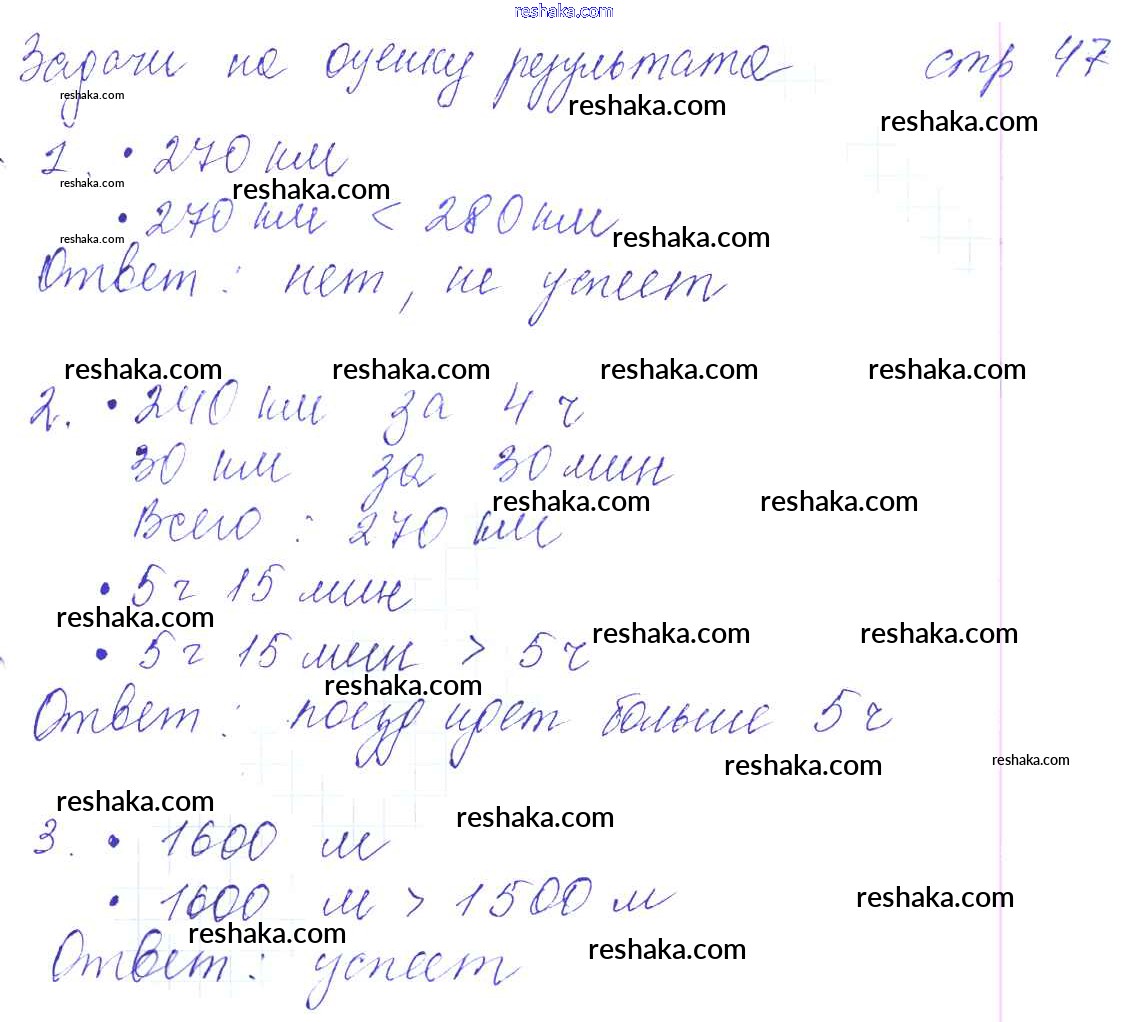 reshaka.com
Задачи на оценку результата стр 47
reshaka.com reshaka.com reshaka.com
1. • 270 км
reshaka.com reshaka.com
• 270 км < 280 км
reshaka.com reshaka.com
Ответ: нет, не успеет
reshaka.com reshaka.com reshaka.com reshaka.com
2. • 240 км за 4 ч
30 км за 30 мин
reshaka.com reshaka.com
Всего: 270 км
• 5 ч 15 мин
reshaka.com reshaka.com reshaka.com
• 5 ч 15 мин > 5 ч
reshaka.com
Ответ: поезд идет больше 5 ч
reshaka.com reshaka.com
reshaka.com reshaka.com
3. • 1600 м
• 1600 м > 1500 м
reshaka.com
reshaka.com reshaka.com
Ответ: успеет